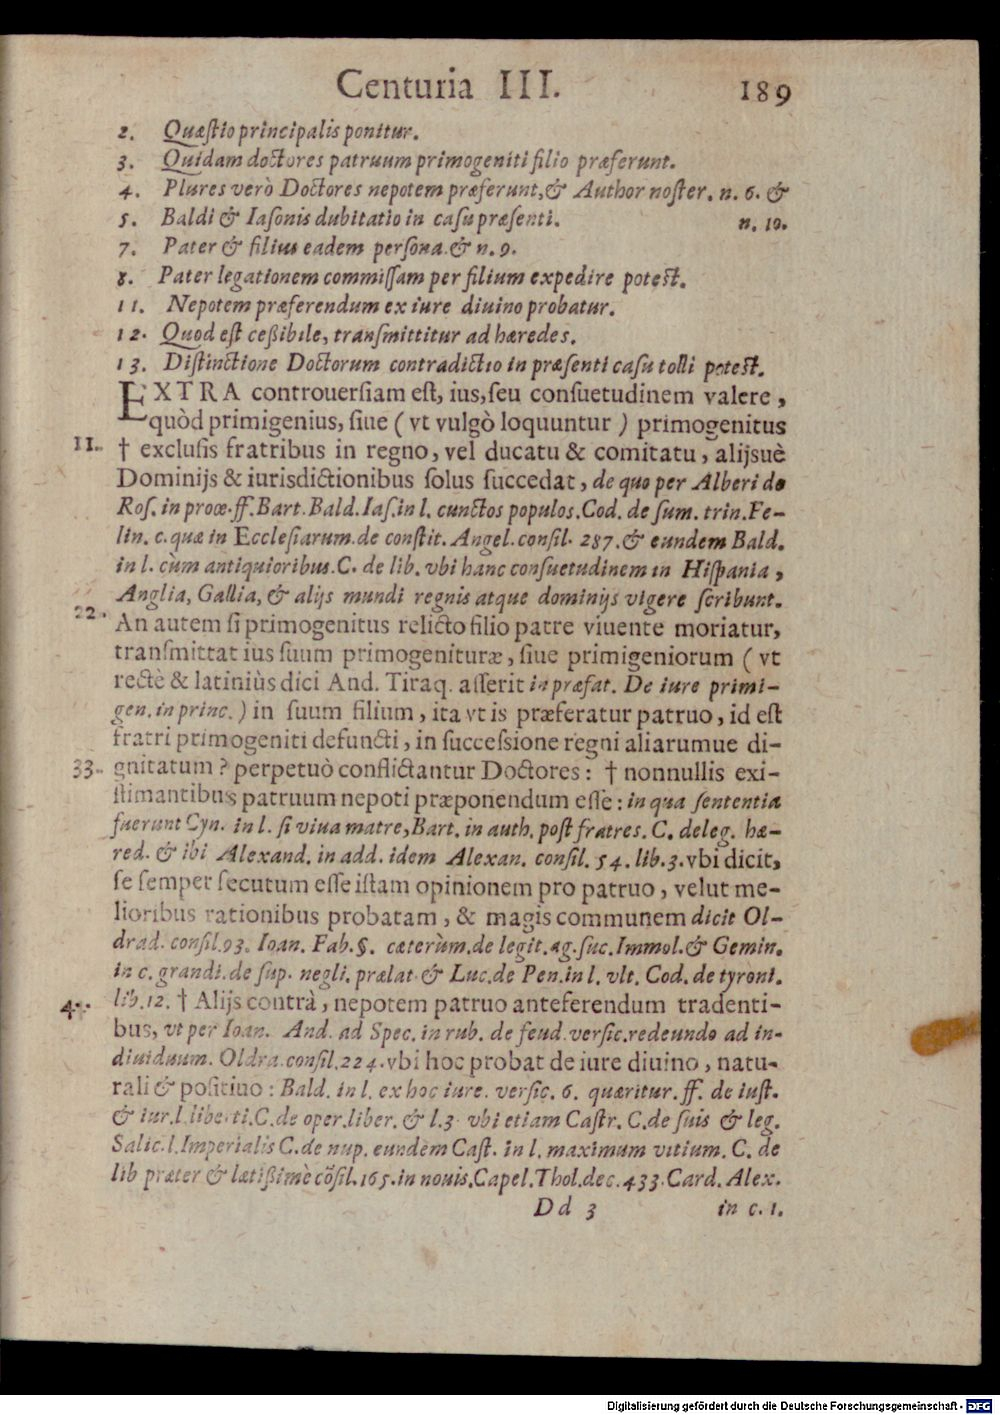 Centuria III. 189
2. Quæſtio principalis ponitur.
3. Quidam doctores patruum primogeniti filio præferunt.
4. Plures verò Doctores nepotem præferunt, & Author noſter. n. 6. &
5. Baldi & Iaſonis dubitatio in caſu præſenti. n. 10.
7. Pater & filius eadem perſona. & n. 9.
8. Pater legationem commiſſam per filium expedire poteſt.
11. Nepotem præferendum ex iure diuino probatur.
12. Quod eſt ceßibile, tranſmittitur ad hæredes.
13. Diſtinctione Doctorum contradictio in præſenti caſu tolli poteſt.
EXTRA controuerſiam eſt, ius, ſeu conſuetudinem valere,
quòd primigenius, ſiue (vt vulgò loquuntur) primogenitus
11. † excluſis fratribus in regno, vel ducatu & comitatu, alijsuè
Dominijs & iurisdictionibus ſolus ſuccedat, de quo per Alberi de
Roſ. in proœ. ff. Bart. Bald. Iaſ. in l. cunctos populos. Cod. de ſum. trin. Fe-
lin. c. quæ in Eccleſiarum. de conſtit. Angel. conſil. 287. & eundem Bald.
in l. cùm antiquioribus. C. de lib. vbi hanc conſuetudinem in Hiſpania,
Anglia, Gallia, & alijs mundi regnis atque dominijs vigere ſcribunt.
22. An autem ſi primogenitus relicto filio patre viuente moriatur,
tranſmittat ius ſuum primogenituræ, ſiue primigeniorum (vt
rectè & latiniùs dici And. Tiraq. aſſerit in præfat. De iure primi-
gen. in princ.) in ſuum filium, ita vt is præferatur patruo, id eſt
fratri primogeniti defuncti, in ſucceſsione regni aliarumue di-
33. gnitatum? perpetuò conflictantur Doctores: † nonnullis exi-
ſtimantibus patruum nepoti præponendum eſſe: in qua ſententia
fuerunt Cyn. in l. ſi viua matre, Bart. in auth. poſt fratres. C. de leg. hæ-
red. & ibi Alexand. in add. idem Alexan. conſil. 54. lib. 3. vbi dicit,
ſe ſemper ſecutum eſſe iſtam opinionem pro patruo, velut me-
lioribus rationibus probatam, & magis communem dicit Ol-
drad. conſil. 93. Ioan. Fab. §. cæterùm. de legit. ag. ſuc. Immol. & Gemin.
in c. grandi. de ſup. negli. prælat. & Luc. de Pen. in l. vlt. Cod. de tyroni.
4. lib. 12. † Alijs contrà, nepotem patruo anteferendum tradenti-
bus, vt per Ioan. And. ad Spec. in rub. de feud. verſic. redeundo ad in-
diuiduum. Oldra. conſil. 224. vbi hoc probat de iure diuino, natu-
rali & poſitiuo: Bald. in l. ex hoc iure. verſic. 6. quæritur. ff. de iuſt.
& iur. l. liberti. C. de oper. liber. & l. 3. vbi etiam Caſtr. C. de ſuis & leg.
Salic. l. Imperialis C. de nup. eundem Caſt. in l. maximum vitium. C. de
lib præter & latißimè cõſil. 165. in nouis. Capel. Thol. dec. 433. Card. Alex.
Dd 3 in c. 1.
Digitalisierung gefördert durch die Deutsche Forschungsgemeinschaft - DFG